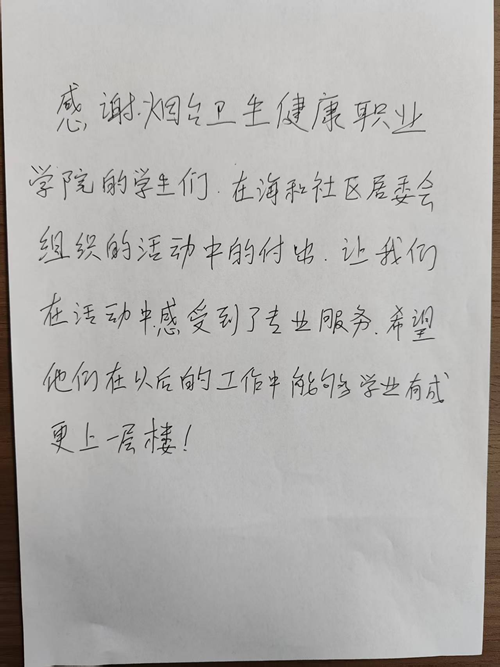 感谢.烟台卫生健康职业
学院的学生们.在海和社区居委会
组织的活动中的付出.让我们
在活动中感受到了专业服务.希望
他们在以后的工作中能够学业有成
更上一层楼!